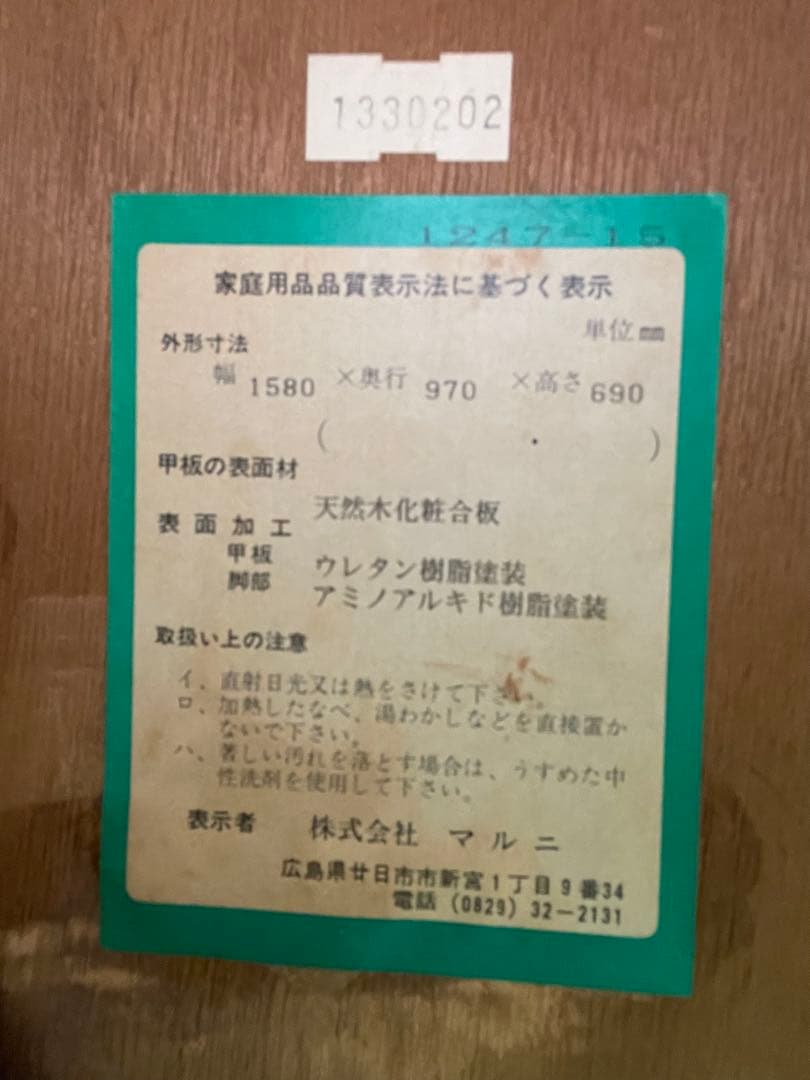 1330202
1247-15
家庭用品品質表示法に基づく表示
単位㎜
外形寸法
幅 1580 ×奥行 970 ×高さ 690
( )
甲板の表面材
天然木化粧合板
表面加工
甲板 ウレタン樹脂塗装
脚部 アミノアルキド樹脂塗装
取扱い上の注意
イ、直射日光又は熱をさけて下さい。
ロ、加熱したなべ、湯わかしなどを直接置か
ないで下さい。
ハ、著しい汚れを落とす場合は、うすめた中
性洗剤を使用して下さい。
表示者 株式会社 マルニ
広島県廿日市市新宮1丁目9番34
電話 (0829) 32-2131